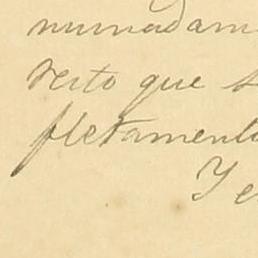 numadam
resto que s
pletamente
Y e